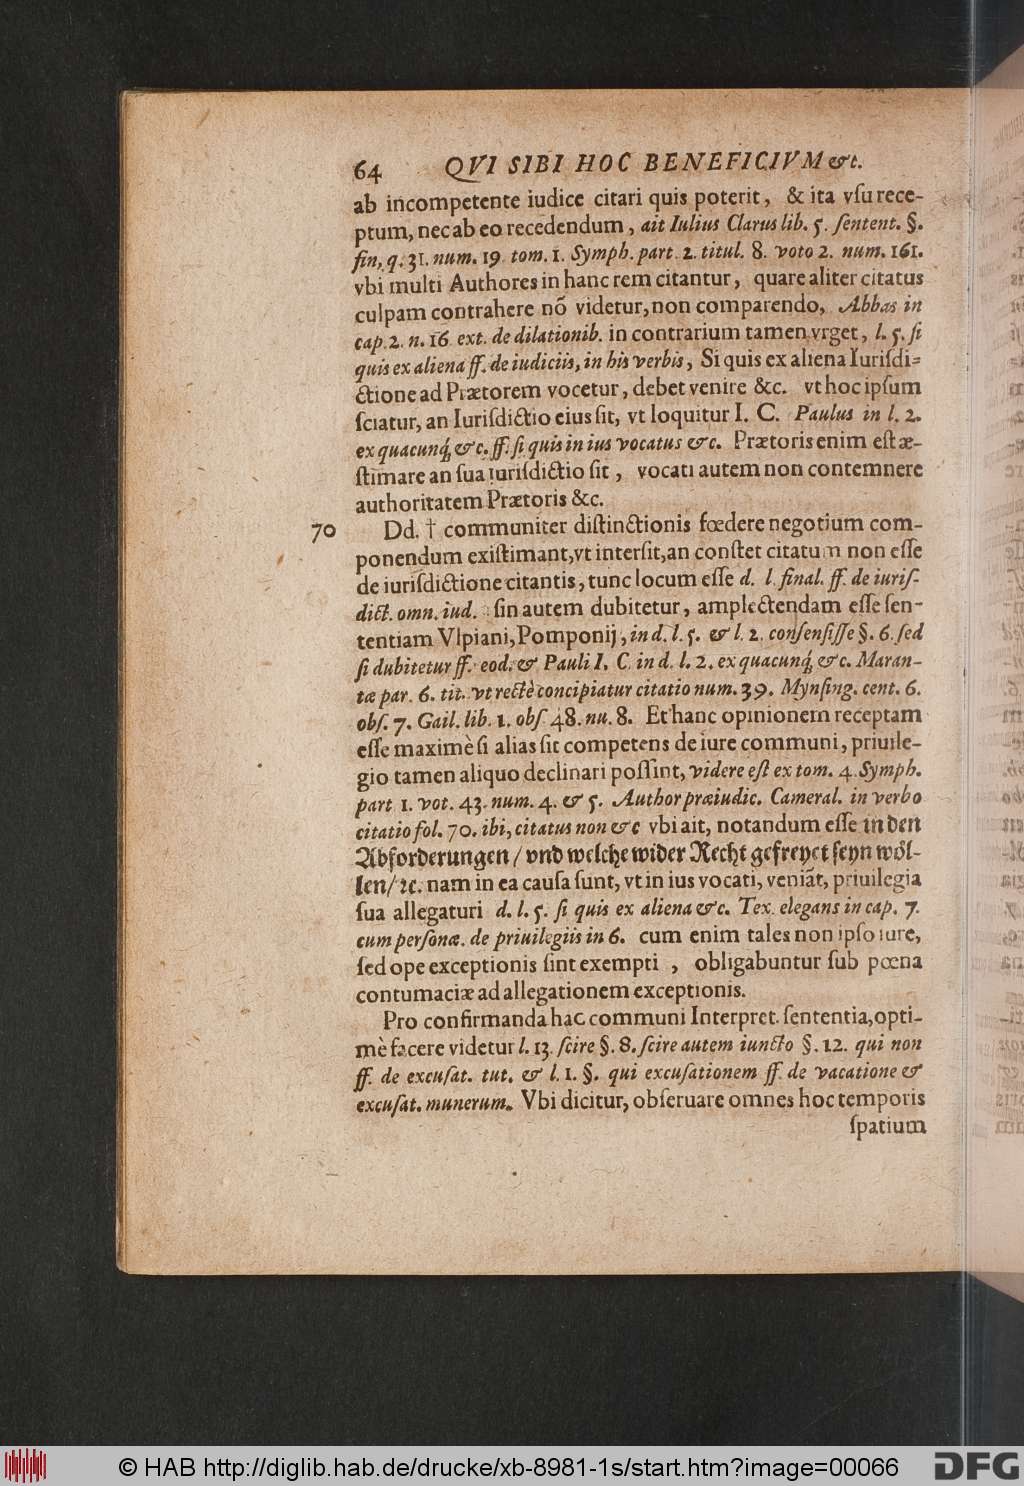 64 QVI SIBI HOC BENEFICIVM &c.
ab incompetente iudice citari quis poterit, & ita vſu rece-
ptum, nec ab eo recedendum, ait Iulius Clarus lib. 5. ſentent. §.
fin, q. 31. num. 19. tom. 1. Symph. part. 2. titul. 8. voto 2. num. 161.
vbi multi Authores in hanc rem citantur, quare aliter citatus
culpam contrahere nō videtur, non comparendo, Abbas in
cap. 2. n. 16. ext. de dilationib. in contrarium tamen vrget, l. 5. ſi
quis ex aliena ff. de iudiciis, in his verbis, Si quis ex aliena Iuriſdi⸗
ctione ad Prætorem vocetur, debet venire &c. vt hoc ipſum
ſciatur, an Iuriſdictio eius ſit, vt loquitur I. C. Paulus in l. 2.
ex quacunq́, &c. ff. ſi quis in ius vocatus &c. Prætoris enim eſt æ-
ſtimare an ſua iuriſdictio ſit, vocati autem non contemnere
authoritatem Prætoris &c.
70 Dd. † communiter diſtinctionis fœdere negotium com-
ponendum exiſtimant, vt interſit, an conſtet citatum non eſſe
de iuriſdictione citantis, tunc locum eſſe d. l. final. ff. de iuriſ-
dict. omn. iud. ſin autem dubitetur, amplectendam eſſe ſen-
tentiam Vlpiani, Pomponij, in d. l. 5. & l. 2. conſenſiſſe §. 6. ſed
ſi dubitetur ff. eod. & Pauli I. C. in d. l. 2. ex quacunq́, &c. Maran-
tæ par. 6. tit. vt rectè concipiatur citatio num. 39. Mynſing. cent. 6.
obſ. 7. Gail. lib. 1. obſ 48. nu. 8. Et hanc opinionem receptam
eſſe maximè ſi alias ſit competens de iure communi, priuile-
gio tamen aliquo declinari poſſint, videre eſt ex tom. 4. Symph.
part 1. vot. 43. num. 4. & 5. Author præiudic. Cameral. in verbo
citatio fol. 70. ibi, citatus non &c vbi ait, notandum eſſe in den
Abforderungen / vnd welche wider Recht gefreyet ſeyn wöl-
len / ꝛc. nam in ea cauſa ſunt, vt in ius vocati, veniāt, priuilegia
ſua allegaturi d. l. 5. ſi quis ex aliena &c. Tex. elegans in cap. 7.
cum perſonæ. de priuilegiis in 6. cum enim tales non ipſo iure,
ſed ope exceptionis ſint exempti , obligabuntur ſub pœna
contumaciæ ad allegationem exceptionis.
Pro confirmanda hac communi Interpret. ſententia, opti-
mè facere videtur l. 13. ſcire §. 8. ſcire autem iuncto §. 12. qui non
ff. de excuſat. tut. & l. 1. §. qui excuſationem ff. de vacatione &
excuſat. munerum. Vbi dicitur, obſeruare omnes hoc temporis
ſpatium
© HAB http://diglib.hab.de/drucke/xb-8981-1s/start.htm?image=00066 DFG